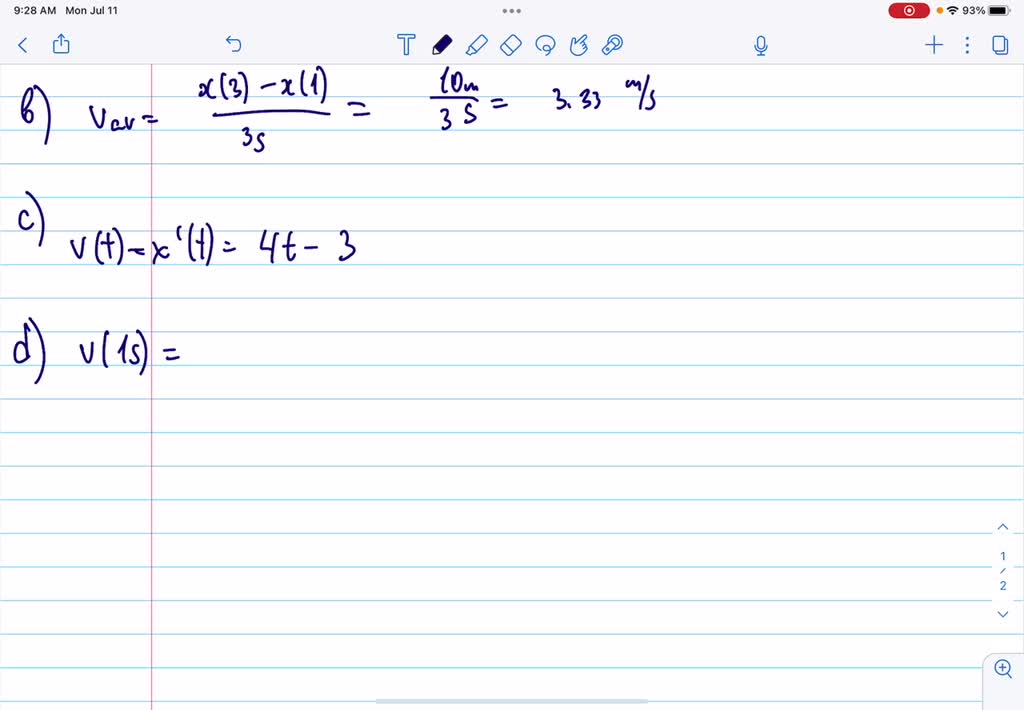 9:28 AM Mon Jul 11
93%
b) Vav = x(3) - x(1) / 3s = 10m / 3s = 3.33 m/s
c) v(t) = x'(t) = 4t - 3
d) v(1s) =
1
/
2